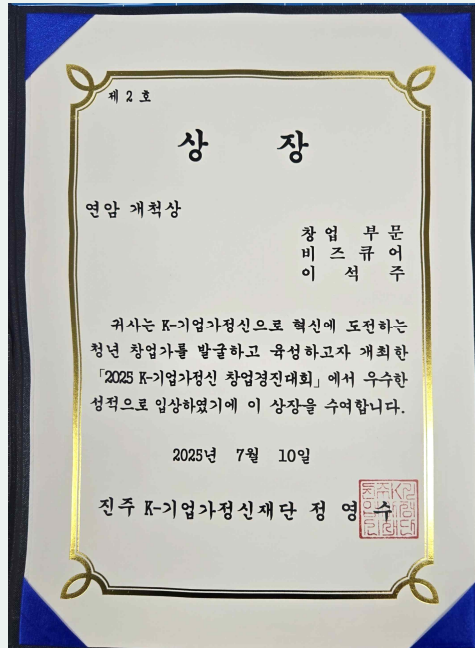 제 2 호
상 장
연암 개척상
창업 부문
비즈큐어
이석주
귀사는 K-기업가정신으로 혁신에 도전하는
청년 창업가를 발굴하고 육성하고자 개최한
「2025 K-기업가정신 창업경진대회」에서 우수한
성적으로 입상하였기에 이 상장을 수여합니다.
2025년 7월 10일
진주 K-기업가정신재단 정영수